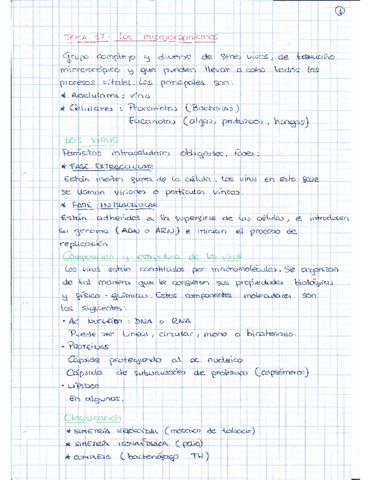 1
TEMA 17: Los microorganismos
Grupo complejo y diverso de seres vivos, de tamaño
microscópico y que pueden llevar a cabo todos los
procesos vitales. Los principales son:
* Acelulares: virus
* Celulares: Procariotas (Bacterias)
Eucariotas (algas, protozoos, hongos)
LOS VIRUS
Parásitos intracelulares obligados. Fases:
* FASE EXTRACELULAR
Están inertes fuera de la célula. Los virus en esta fase
se llaman viriones o partículas víricas.
* FASE INTRACELULAR
Están adheridos a la superficie de las células, e introducen
su genoma (ADN o ARN) e inician el proceso de
replicación
Composición y estructura de los virus
Los virus están constituidos por macromoléculas. Se organizan
de tal manera que le confieren sus propiedades biológicas
y físico-químicas. Estos componentes moleculares son
los siguientes:
- Ac NUCLEICO: DNA o RNA
Puede ser lineal, circular, mono o bicatenario.
- PROTEÍNAS
Cápside protegiendo al ac nucleico
Cápsida de subunidades de proteínas (capsómeros)
- LÍPIDOS
En algunos.
Clasificación
* SIMETRÍA HELICOIDAL (mosaico de tabaco)
* SIMETRÍA ICOSAÉDRICA (polio)
* COMPLEJA (bacteriófago T4)